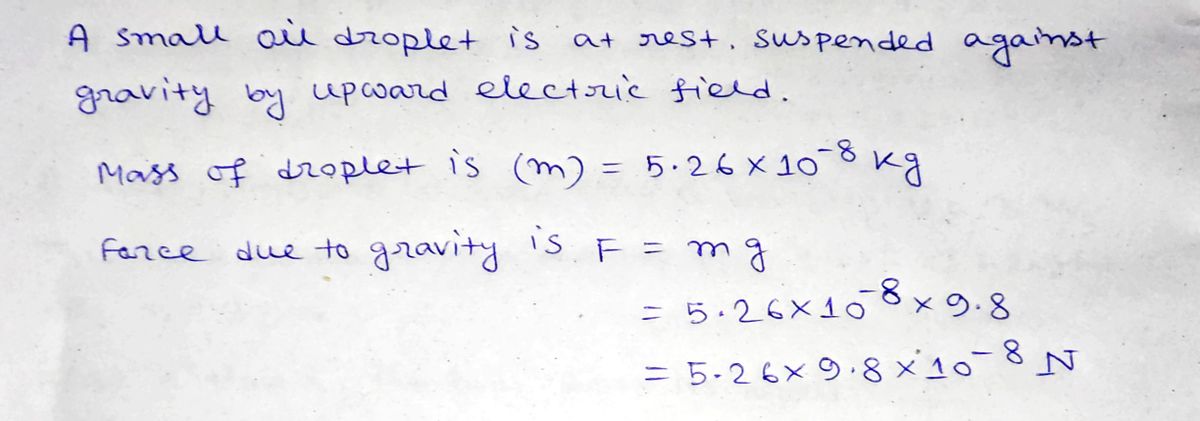 A small oil droplet is at rest. suspended against
gravity by upward electric field.
Mass of droplet is (m) = 5.26 × 10⁻⁸ kg
Force due to gravity is F = mg
= 5.26×10⁻⁸ × 9.8
= 5.26×9.8×10⁻⁸ N